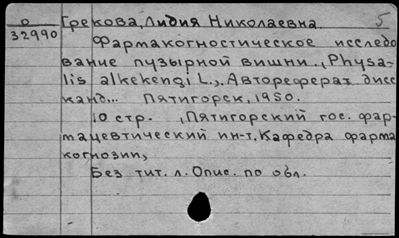 о Грекова, Лидия Николаевна 5
32990
Фармакогностическое исследо
вание пузырной вишни., (Physa-
lis alkekengi L.,. Автореферат дисс
канд... Пятигорск, 1950.
10 стр. , (Пятигорский гос. фар-
мацевтический ин-т. Кафедра фарма
когнозии,
Без тит. л. Опис. по обл.